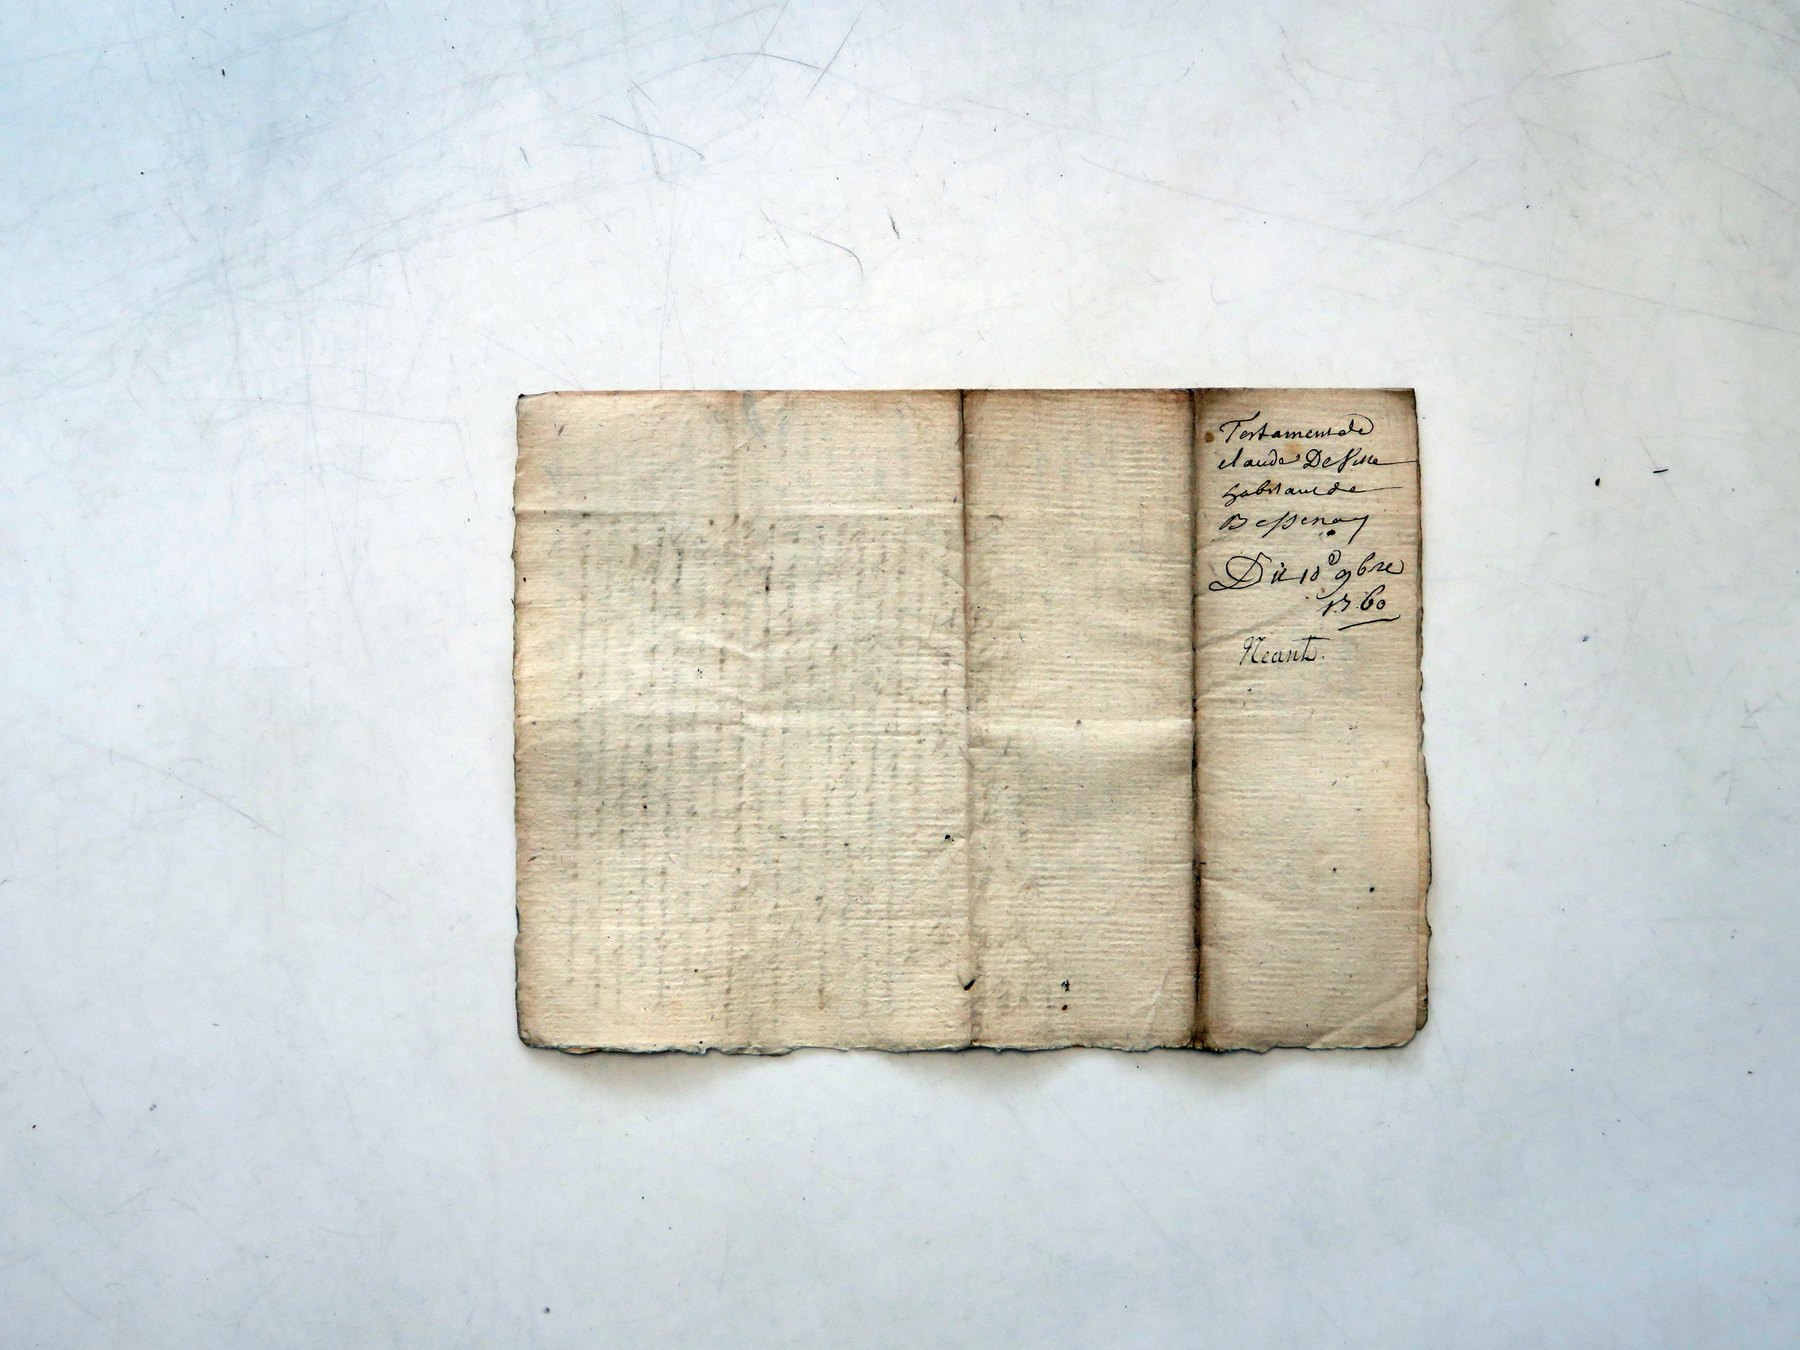 Testament de
claude DeVille
habitant de
Bessenay
Du 10e 9bre
1760
Neant.